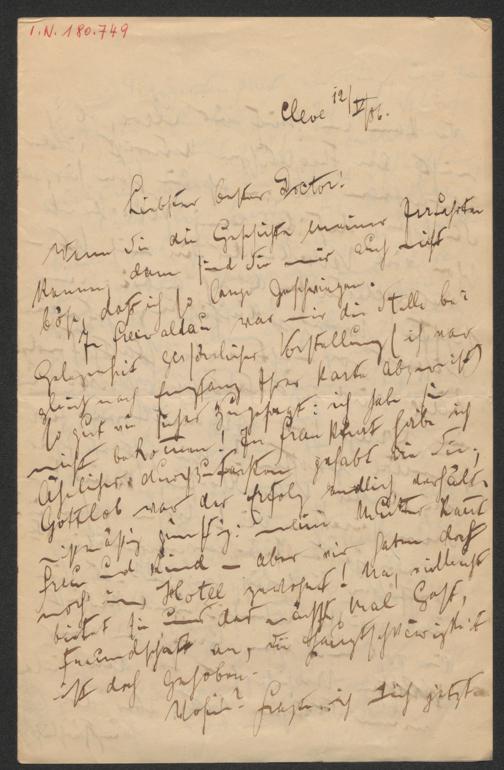 I.N. 180.749
Cleve 12/V/86.
Liebster bester Doctor!
Wenn Sie die Geschichte meiner Irrfahrten
kennen, dann sind Sie mir auch nicht
böse, daß ich so lange geschwiegen.
In Freiwaldau war mir die Stelle bei
Gelegenheit persönlicher Vorstellung (ich war
gleich nach Empfang Ihrer Karte abgereist)
so gut wie sicher zugesagt: ich habe sie
nicht bekommen! In Frankfurt habe ich
Ähnliches durchzu gehabt wie Sie,
Gottlob war der Erfolg endlich verhält-
nismäßig günstig: mein
Frau und Kind – aber wir haben doch
noch im Hotel gewohnt! Na, vielleicht
bietet sie uns das nächste Mal Gast,
Freundschaft an, die Hauptschwierigkeit
ist doch gehoben.
Wohin? frage ich Dich jetzt